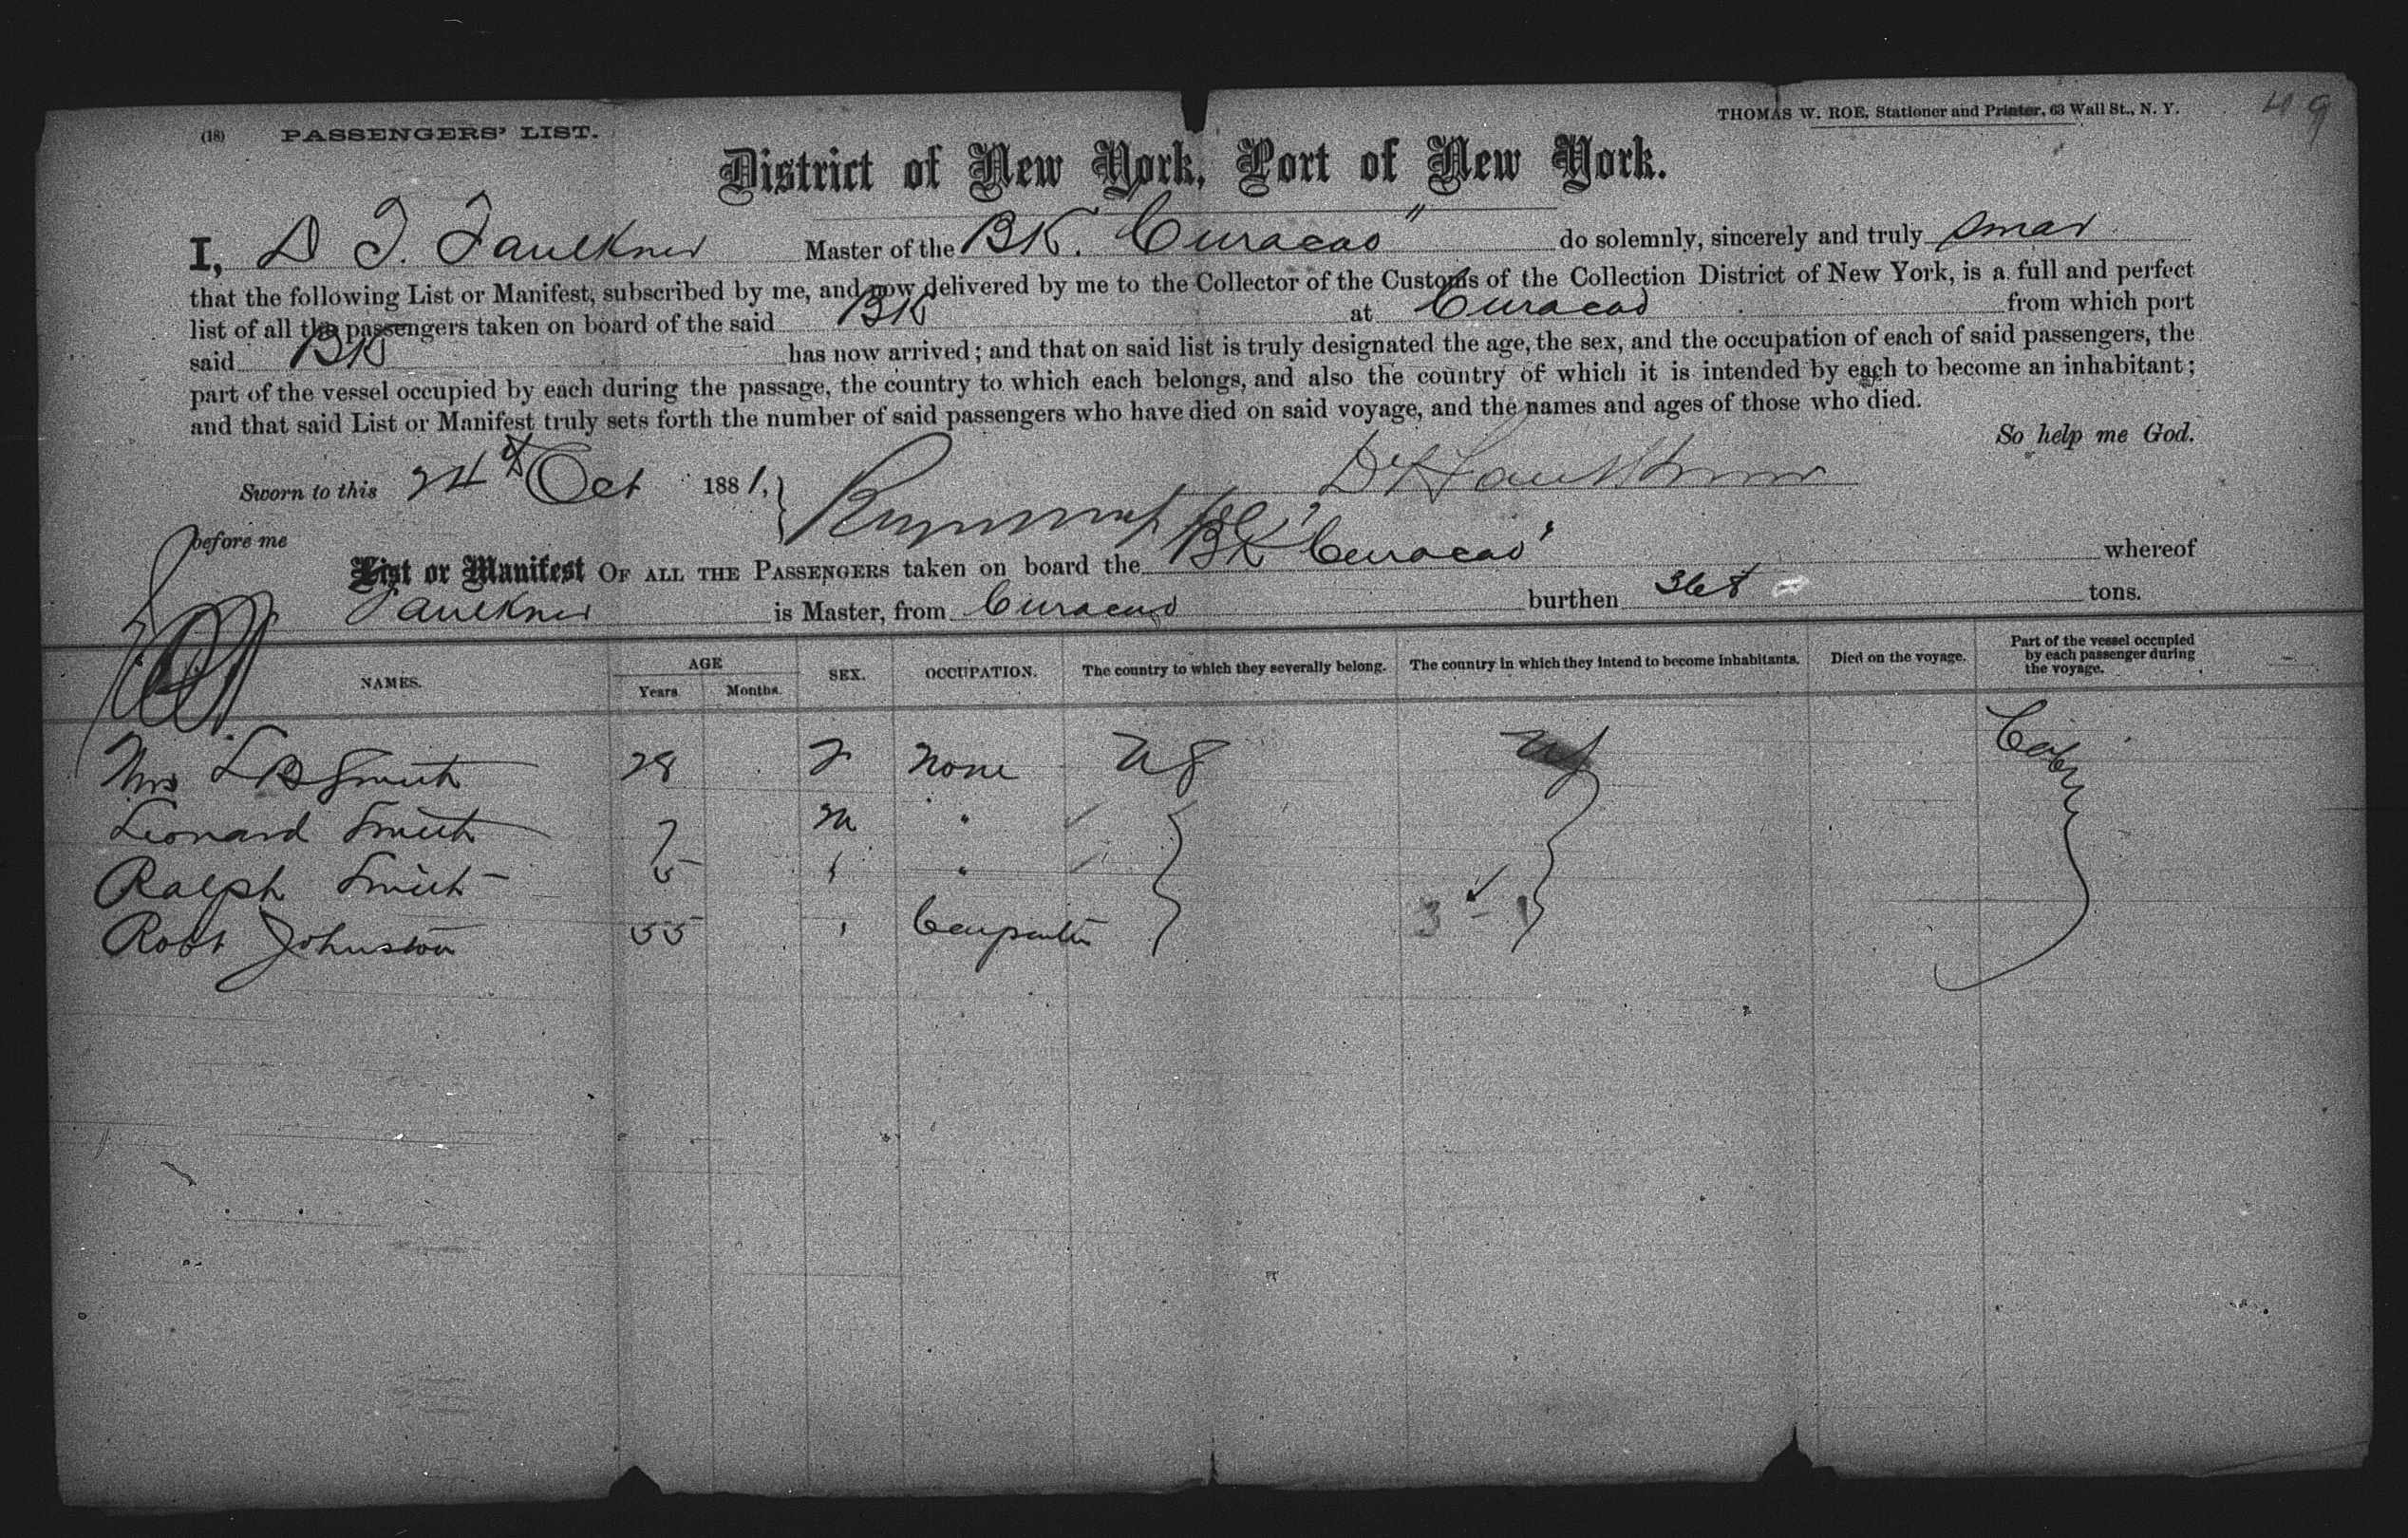 (18) PASSENGERS' LIST.
THOMAS W. ROE, Stationer and Printer, 63 Wall St., N. Y.
49
District of New York, Port of New York.
I, D T. Faulkner Master of the BK. "Curacao" do solemnly, sincerely and truly swear
that the following List or Manifest, subscribed by me, and now delivered by me to the Collector of the Customs of the Collection District of New York, is a full and perfect
list of all the passengers taken on board of the said BK at Curacao from which port
said BK has now arrived; and that on said list is truly designated the age, the sex, and the occupation of each of said passengers, the
part of the vessel occupied by each during the passage, the country to which each belongs, and also the country of which it is intended by each to become an inhabitant;
and that said List or Manifest truly sets forth the number of said passengers who have died on said voyage, and the names and ages of those who died.
So help me God.
Sworn to this 24th Oct 1881, Faulkner
before me
List or Manifest OF ALL THE PASSENGERS taken on board the BK "Curacao" whereof
Faulkner is Master, from Curacao burthen 368 tons.
NAMES. AGE Years Months. SEX. OCCUPATION. The country to which they severally belong. The country in which they intend to become inhabitants. Died on the voyage. Part of the vessel occupied by each passenger during the voyage.
Mrs L B Smith 28 F None US US Cabin
Leonard Smith 7 M "
Ralph Smith 5 " "
Robt Johnston 55 " Carpenter
3 - 1